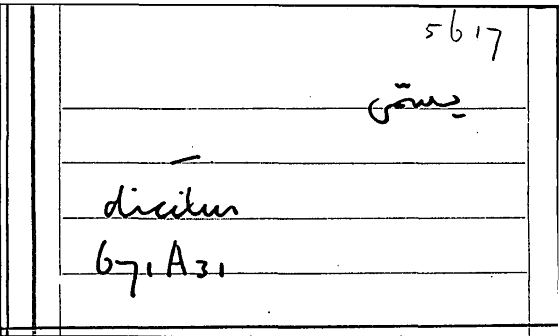 5617
dicitur
671A31